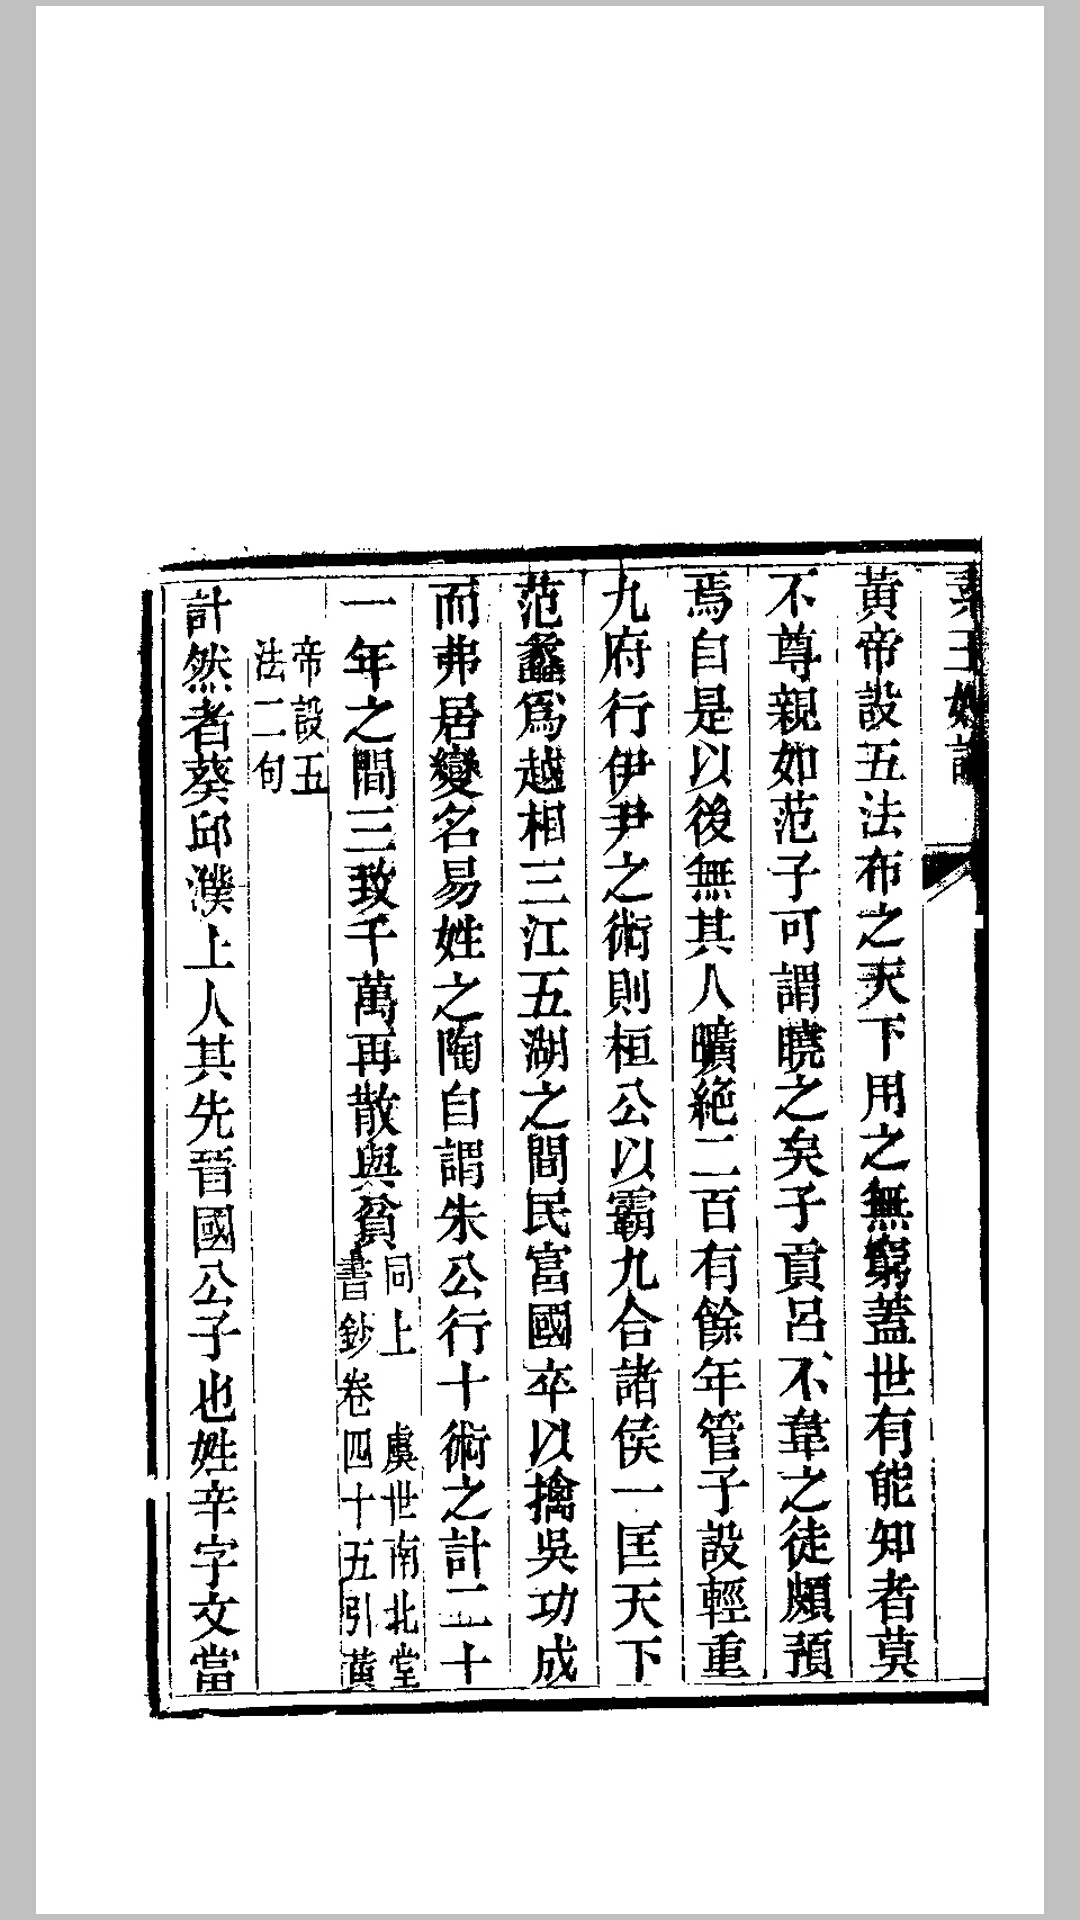 素王妙論
黃帝設五法布之天下用之無窮蓋世有能知者莫
不尊親如范子可謂曉之矣子貢呂不韋之徒頗預
焉自是以後無其人曠絕二百有餘年管子設輕重
九府行伊尹之術則桓公以霸九合諸侯一匡天下
范蠡爲越相三江五湖之間民富國卒以擒吳功成
而弗居變名易姓之陶自謂朱公行十術之計二十
一年之間三致千萬再散與貧同上　虞世南北堂書鈔卷四十五引黃
帝設五法二句
計然者葵邱濮上人其先晉國公子也姓辛字文當